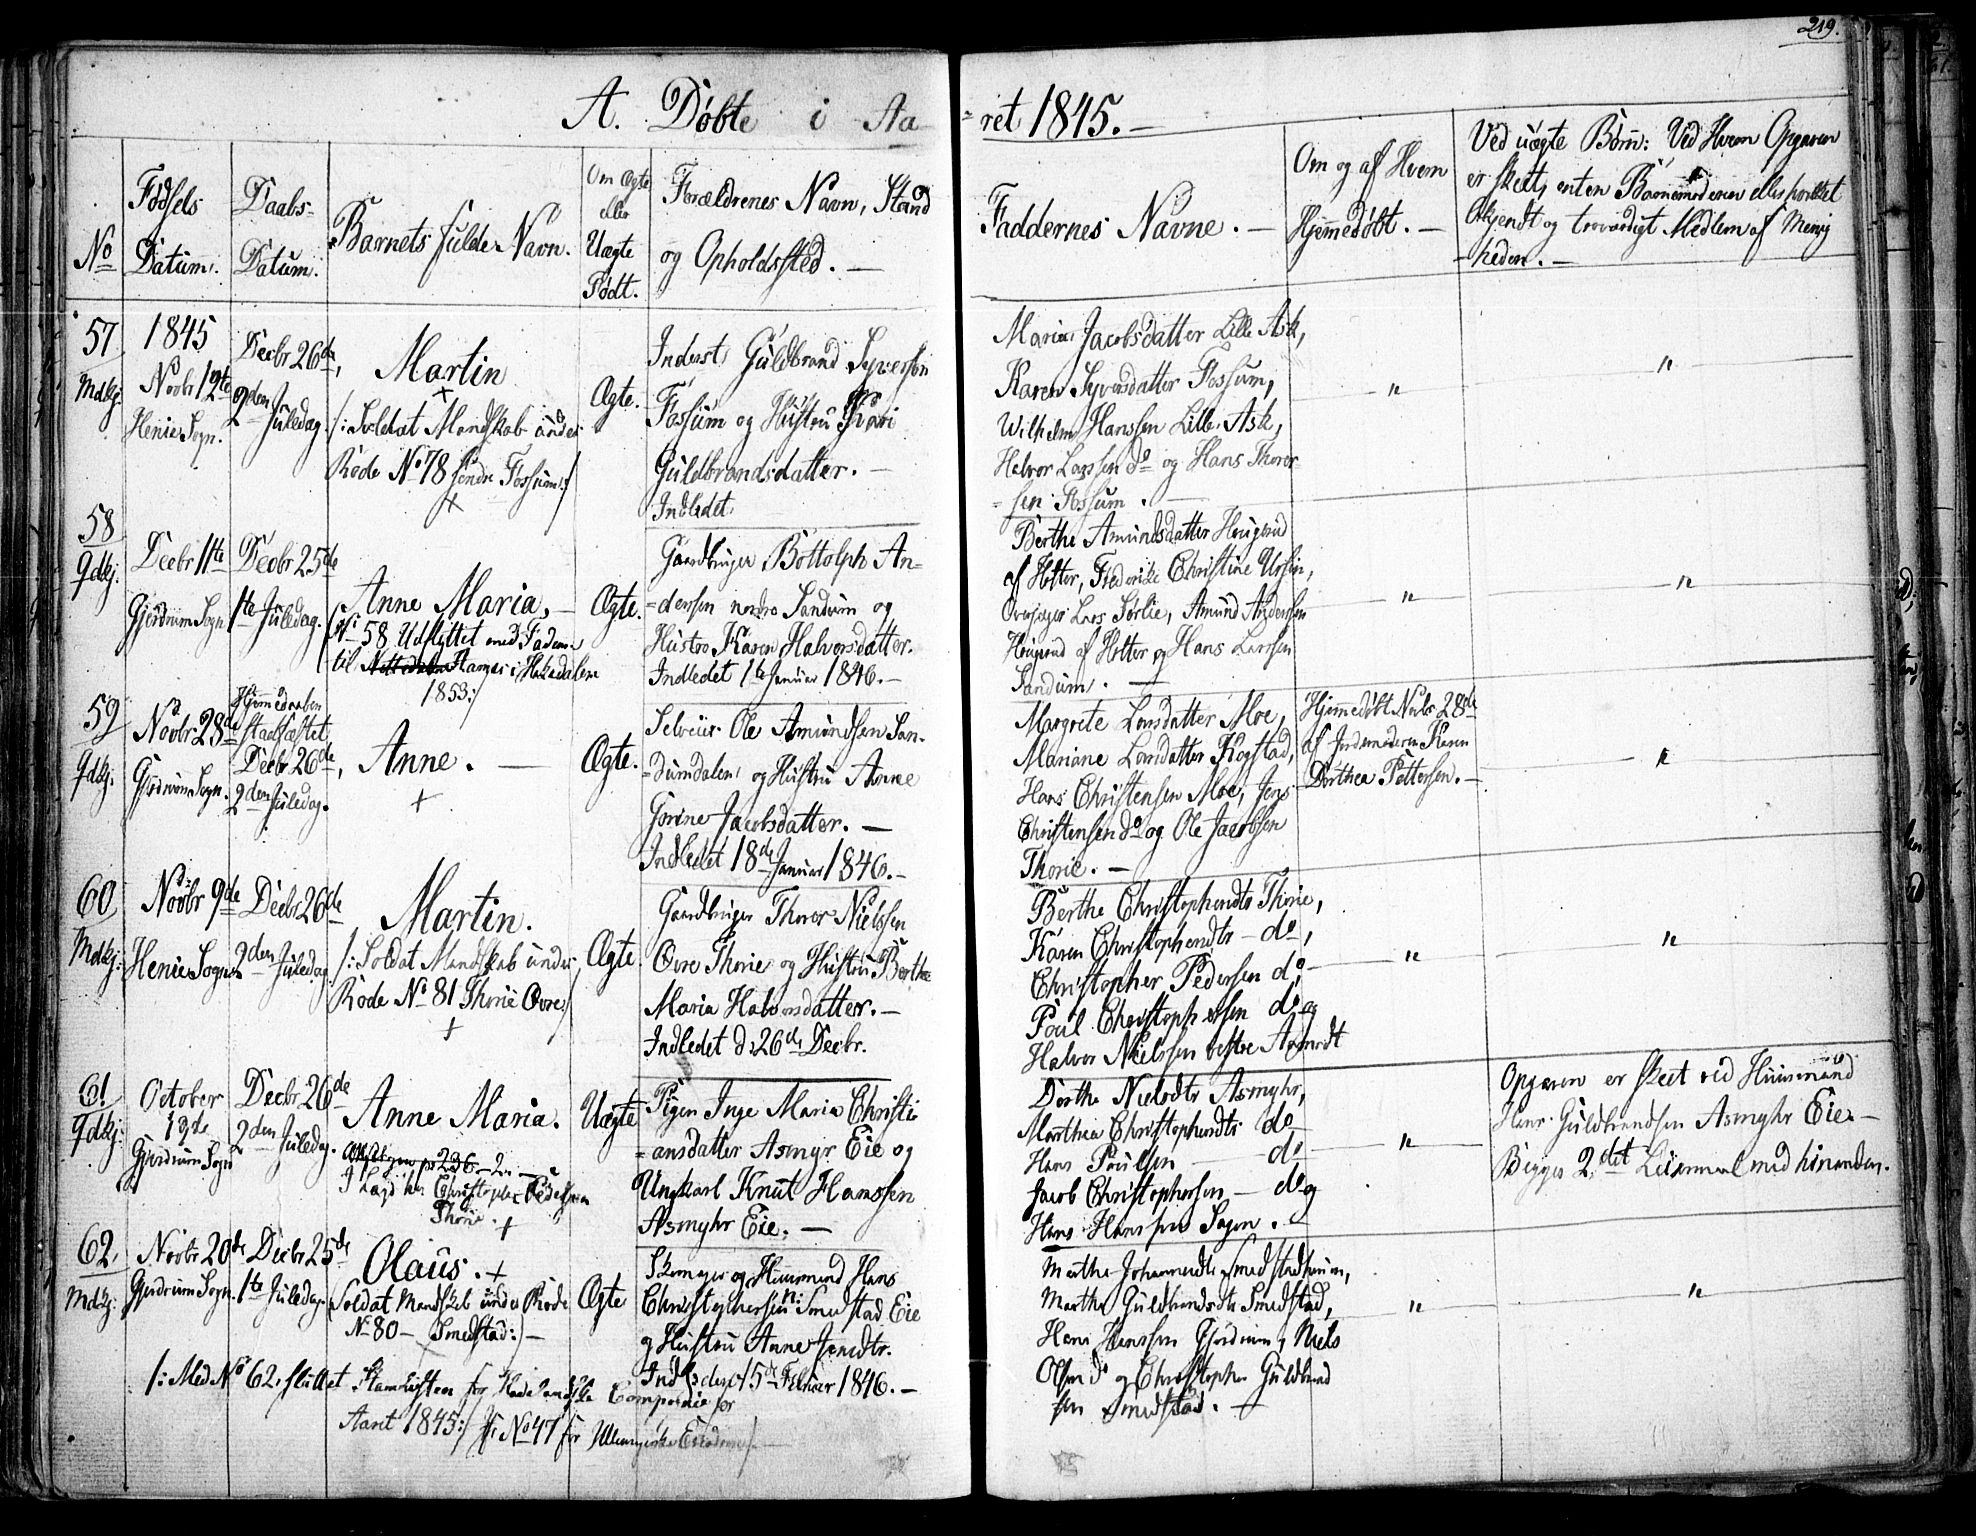 219.
A. Døbte i Aa-
-ret 1845. —
No
Fødsels
Datum.
Daabs-
Datum.
Barnets fulde Navn.
Om Ægte
eller
Uægte
Født.
Forældrenes Navn, Stand
og Opholdssted. —
Faddernes Navne. —
Om og af Hvem
Hjemmedøbt. —
Ved uægte Børn: Ved Hvem Opgaven
er skeet, enten Barnemoderen eller hvilket
Bekjendt og troværdigt Medlem af Menig
-heden. —
57
Mdkj.
1845
Novbr 12te
Henie Sogn.
Decbr 26de,
2den Juledag.
Martin
+
/: Soldat Mandskab under
Rode No 78 Søndre Fossum :/
+
Ægte.
Inderst Guldbrand Syversen
Fossum og Hustru Kari
Guldbrandsdatter. —
Indledet
Maria Jacobsdatter Lille Ask,
Karen Syversdatter Fossum,
Wilhelm Hanssen Lille Ask,
Helvor Larssen do og Hans Thorer
-sen Fossum. —
"
"
58
Qdkj.
Decbr 1ste
Gjerdrum Sogn
Decbr 25de
1ste Juledag.
Anne Maria. —
(No 58 Udflyttet med Faderen
til Stamnes i Hakedalen
1853:/
Ægte.
Gaardbruger Bottolph An-
-dersen nordre Sandum og
Hustro Karen Halvorsdatter.
Indledet 1ste Januar 1846. —
Berthe Amundsdatter Heugerud
af Holter, Frederike Christine Ursin,
Overjæger Lars Sørlie, Amund Andersen
Heugerud af Holter og Hans Larssen
Sandum. —
"
"
59
Qdkj.
Novbr 28de
Gjerdrum Sogn.
Hjemmedaaben
stadfæstet
Decbr 26de,
2den Juledag.
Anne. —
+
Ægte.
Selveier Ole Amundsen San-
-dumdalen og Hustru Anne
Gorine Jacobsdatter. —
Indledet 18de Januar 1846. —
Margrete Larsdatter Moe,
Mariane Larsdatter Kogstad,
Hans Christensen Moe, Jens
Christensen do og Ole Jacobsen
Thorie. —
Hjemmedøbt Novbr 28de
af Jordemoderen Karen
Dorthea Pettersen. —
"
60
Mdkj.
Novbr 9de
Henie Sogn
Decbr 26de
2den Juledag
Martin.
/: Soldat Mandskab under
Rode No 81 Thorie Øvre :/
+
Ægte.
Gaardbruger Thorer Nielssen
Øvre Thorie og Hustru Berthe
Maria Halvorsdatter. —
Indledet d. 26de Decbr.
Berthe Christophersdtr Thorie,
Karen Christophersdtr — do,
Christopher Pedersen do,
Poul Christophersen do og
Halvor Nielssen
"
"
61
Qdkj.
October
19de
Gjerdrum Sogn
Decbr 26de
2den Juledag.
Anne Maria.
I Lægd hos Christopher Pedersen
Thorie. +
Uægte
Pigen Inge Maria Christi
-ansdatter Asmyr Eie og
Ungkarl Knut Hanssen
Asmyhr Eie. —
Dorthe Nielsdtr Asmyhr,
Marthea Christophersdtr do
Hans Poulsen — do
Jacob Christophersen — do og
Hans Hanssen Sogn. —
"
Opgaven er skeet ved Huusmand
Hans Guldbrandsen Asmyhr Eie. —
Begges 2det Leiermaal med hinanden.
62.
Mdkj.
Novbr 20de
Gjerdrum Sogn.
Decbr 25de
1ste Juledag.
Olaus. +
Soldat Mandskab under Rode
No 80 — Smedstad :/ —
Ægte
Skomager og Huusmand Hans
Christophersen Smedstad Eie
og Hustru Anne Jensdtr.
Indl. den 15de Februar 1846. —
Marthe Johannesdtr Smedstadhuun,
Marthe Guldbrandsdtr Smedstad,
Hans Hanssen Gjerdrum, Niels
Olsen do og Christopher Guldbrand
sen Smedstad. —
"
"
/: Med No 62 sluttet Stamlisten for Hadelandske Compagnie for
Aaret 1845 :/ No 47 for